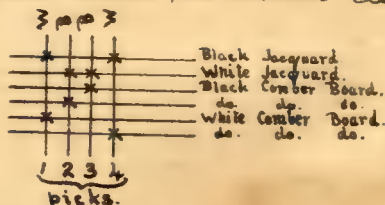 W B B W
Black Jacquard
White Jacquard.
Black Comber Board.
do. do. do.
White Comber Board.
do. do. do.
1 2 3 4
picks.